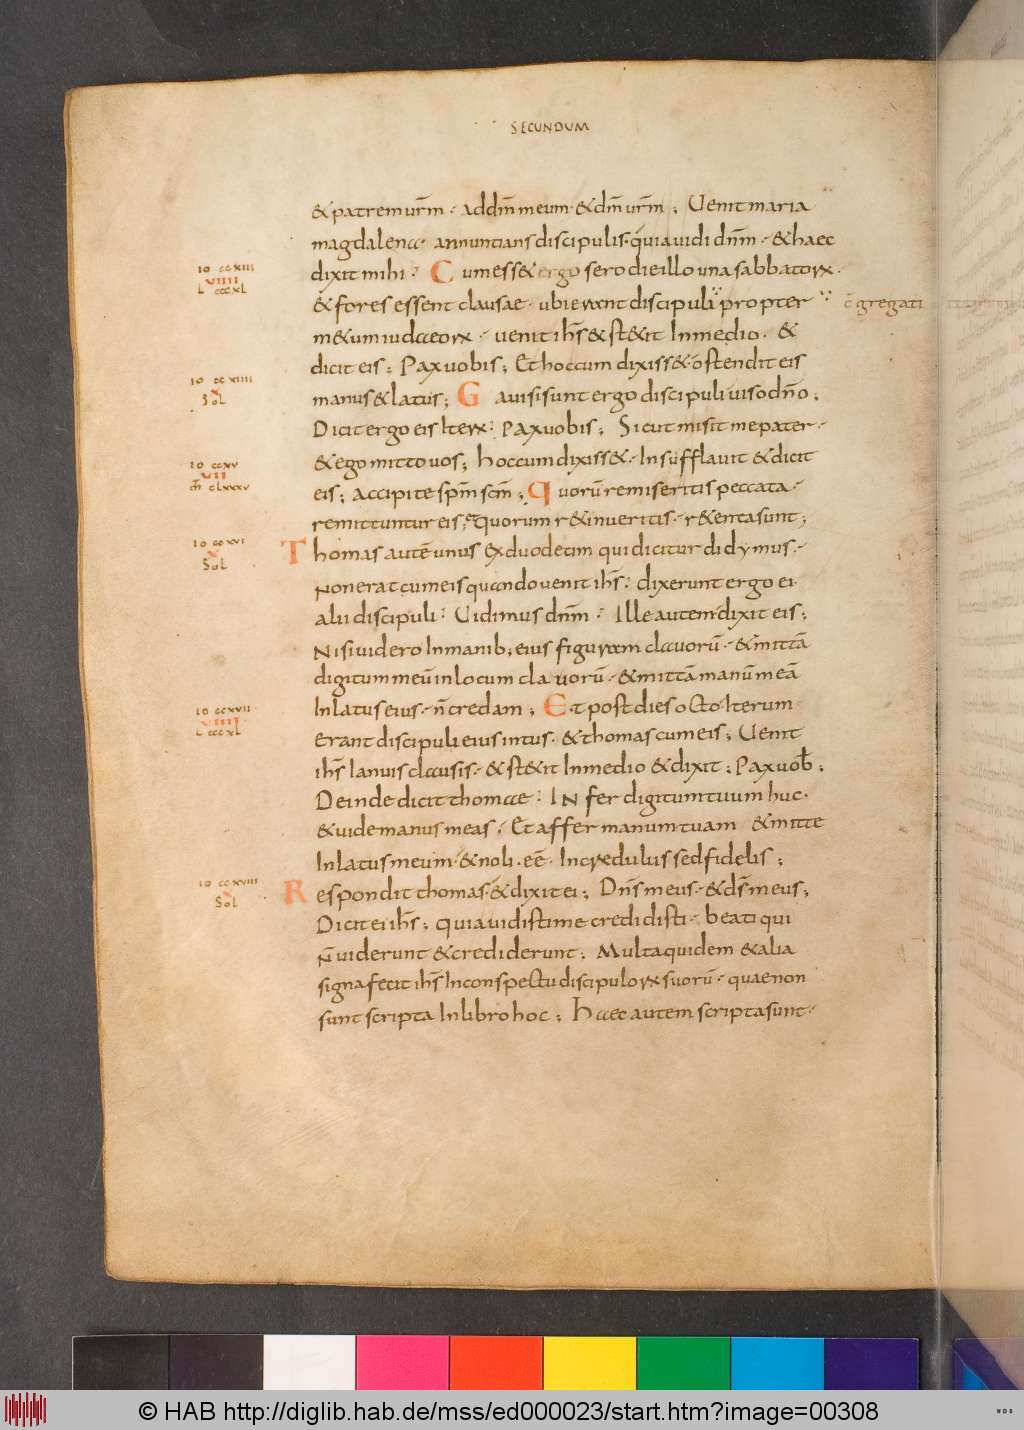 SECUNDUM
& patrem ur̄m · ad dm̄ meum · & dm̄ ur̄m ; Uenit maria
magdalenae annuntians discipulis · quia uidi dnm̄ · & haec
dixit mihi · Cum ess& ergo sero die illo una sabbatorꝝ ·
& fores essent clausae · ubi erant discipuli propter
c̄gregati
m&um iudaeorꝝ · uenit ih̄s & st&it In medio · &
dicit eis ; Pax uobis ; Et hoc cum dixiss& · ostendit eis
manus & latus ; Gauisi sunt ergo discipuli uiso dn̄o ;
Dicit ergo eis Iterꝝ · pax uobis ; Sicut misit me pater ·
& ego mitto uos ; hoc cum dixiss& · Insufflauit & dicit
eis ; accipite sp̄m sc̄m ; Quorū remiseritis peccata ·
remittuntur eis ; & quorum r&inueritis · r&enta sunt ;
Thomas autē unus ex duodecim qui dicitur didymus ·
non erat cum eis quando uenit ih̄s · dixerunt ergo ei ·
alii discipuli · Uidimus dnm̄ · Ille autem dixit eis ;
Nisi uidero In manib; eius figuram clauorū · & mittā
digitum meū in locum clauorū · & mittā manū meā
In latus eius · n̄ credam ; Et post dies octo Iterum
erant discipuli eius intus · & thomas cum eis ; Uenit
ih̄s Ianuis clausis · & st&it In medio & dixit ; Pax uob̄ ;
Deinde dicit thomae · INfer digitum tuum huc ·
& uide manus meas · Et affer manum tuam & mitte
In latus meum · & noli · eē · Incredulus sed fidelis ;
Respondit thomas · & dixit ei ; Dn̄s meus · & ds̄ meus ;
Dicit ei ih̄s ; quia uidisti me credidisti · beati qui
n̄ uiderunt & crediderunt ; Multa quidem & alia
signa fecit ih̄s In conspectu discipulorꝝ suorū · quae non
sunt scripta In libro hoc ; Haec autem scripta sunt ·
IO CCXIII
VIIII
L CCCXL
IO CCXIIII
X
SOL
IO CCXV
VII
CLXXXV
IO CCXVI
X
SOL
IO CCXVII
VIIII
L CCCXL
IO CCXVIII
X
SOL
© HAB http://diglib.hab.de/mss/ed000023/start.htm?image=00308